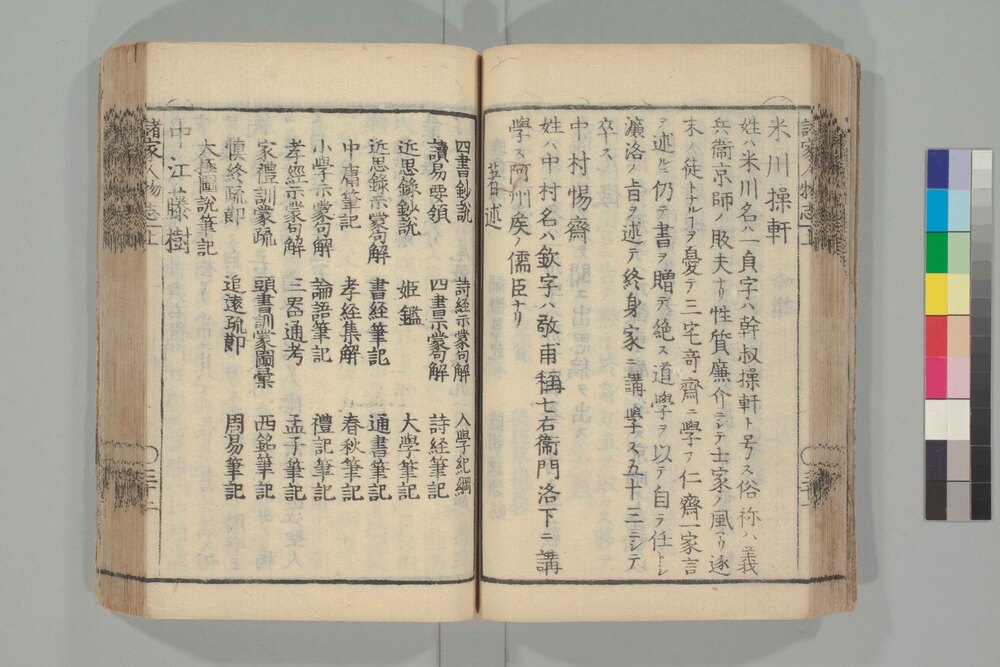 米川操軒
姓ハ米川名ハ一貞字ハ幹叔操軒ト号ス俗称ハ義
兵衞京師ノ販夫ナリ性質廉介ニシテ士家ノ風アリ遂
末徒トナルヿヲ憂テ三宅寄齋ニ學フ仁齋一家言
ヲ述ルニ仍テ書ヲ贈テ絶ス道學ヲ以テ自ラ任トシ
濂洛ノ旨ヲ述テ終身家ニ講學ス五十三ニシテ
卒ス
中村惕齋
姓ハ中村名ハ欽字ハ敬甫稱七右衞門洛下ニ講
學ス阿州矦ノ儒臣ナリ
著述
四書鈔説 詩経示蒙句解 入學紀綱
讀易要領 四書示蒙句解 詩経筆記
近思録鈔説 姫鑑 大學筆記
近思録示蒙句解 書経筆記 通書筆記
中庸筆記 孝経集解 春秋筆記
小學示蒙句解 論語筆記 禮記筆記
孝経示蒙句解 三器通考 孟子筆記
家禮訓蒙疏 頭書訓蒙圖彙 西銘筆記
愼終疏節 追遠疏節 周易筆記
大極圖説筆記
中江藤樹
諸家人物志 上